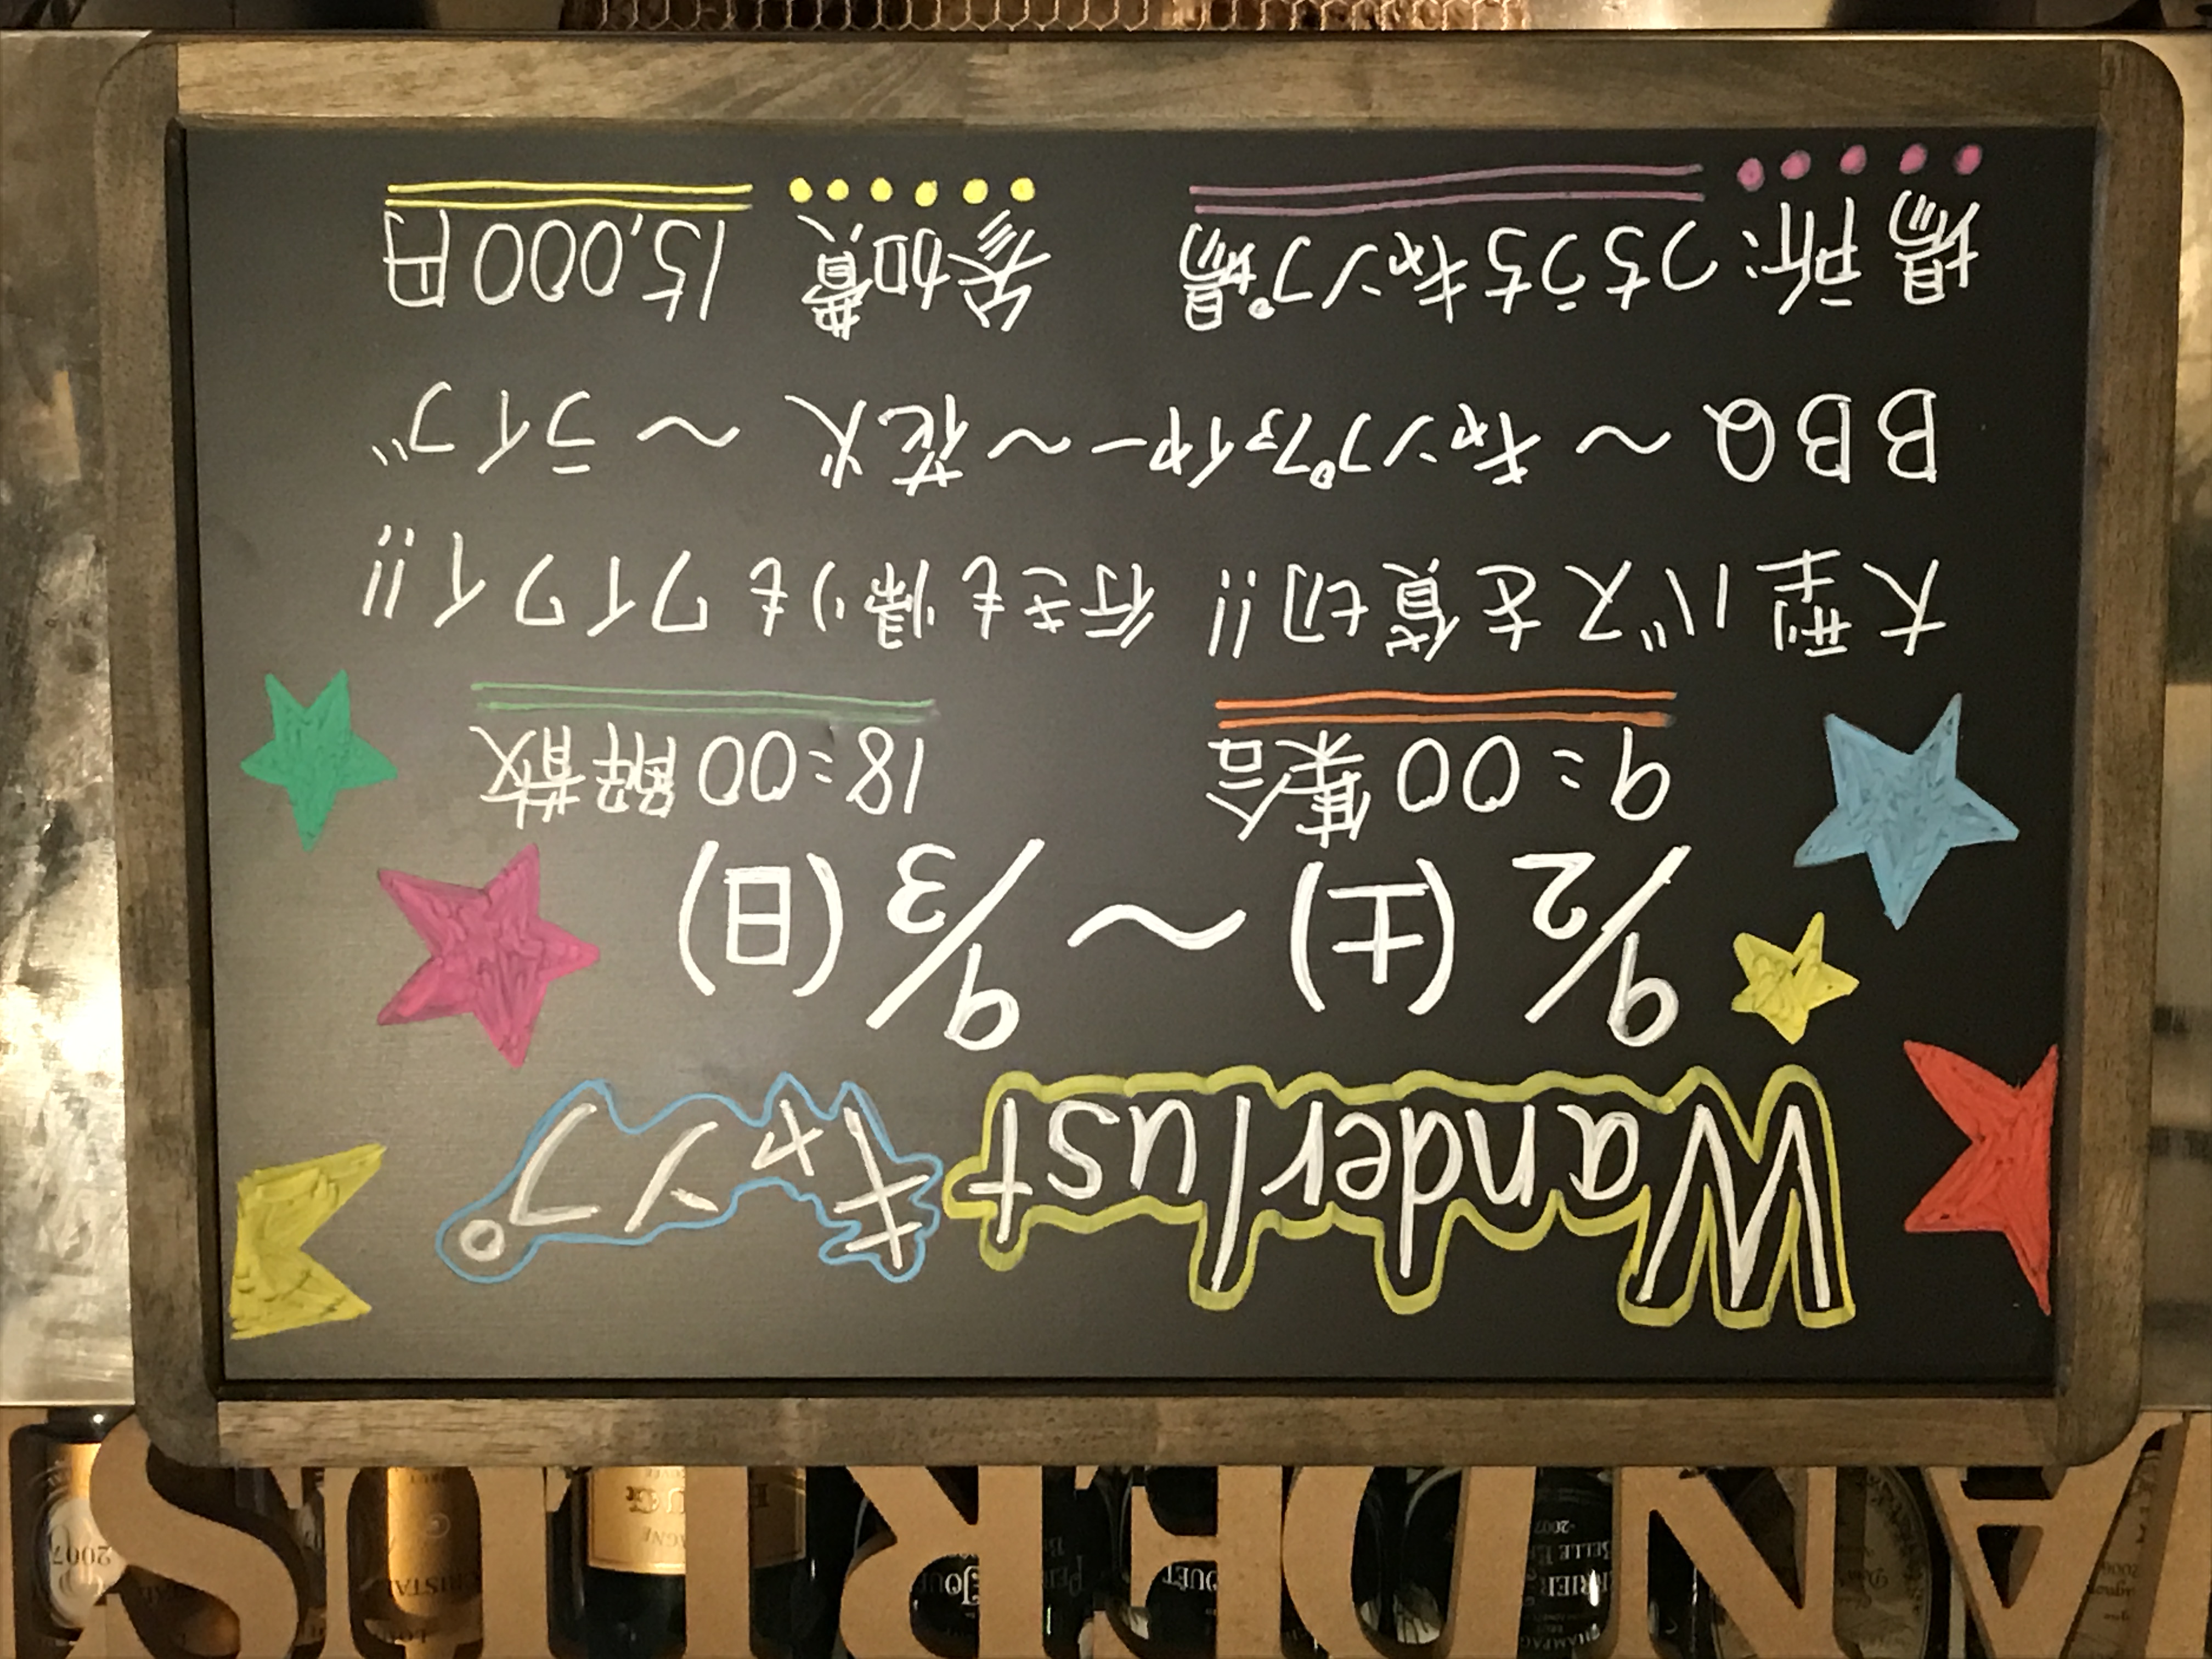 Wanderlust キャンプ
9/2 (土) 〜 9/3 (日)
9:00 集合 18:00 解散
大型バスを貸切!! 行きも帰りもワイワイ!!
BBQ 〜 キャンプファイヤー 〜 花火 〜 ライブ
場所:つちうちキャンプ場 参加費 15,000円
ANDERLUS
2007
CRISTAL
BELLE
-2007-
CHAMPAGNE